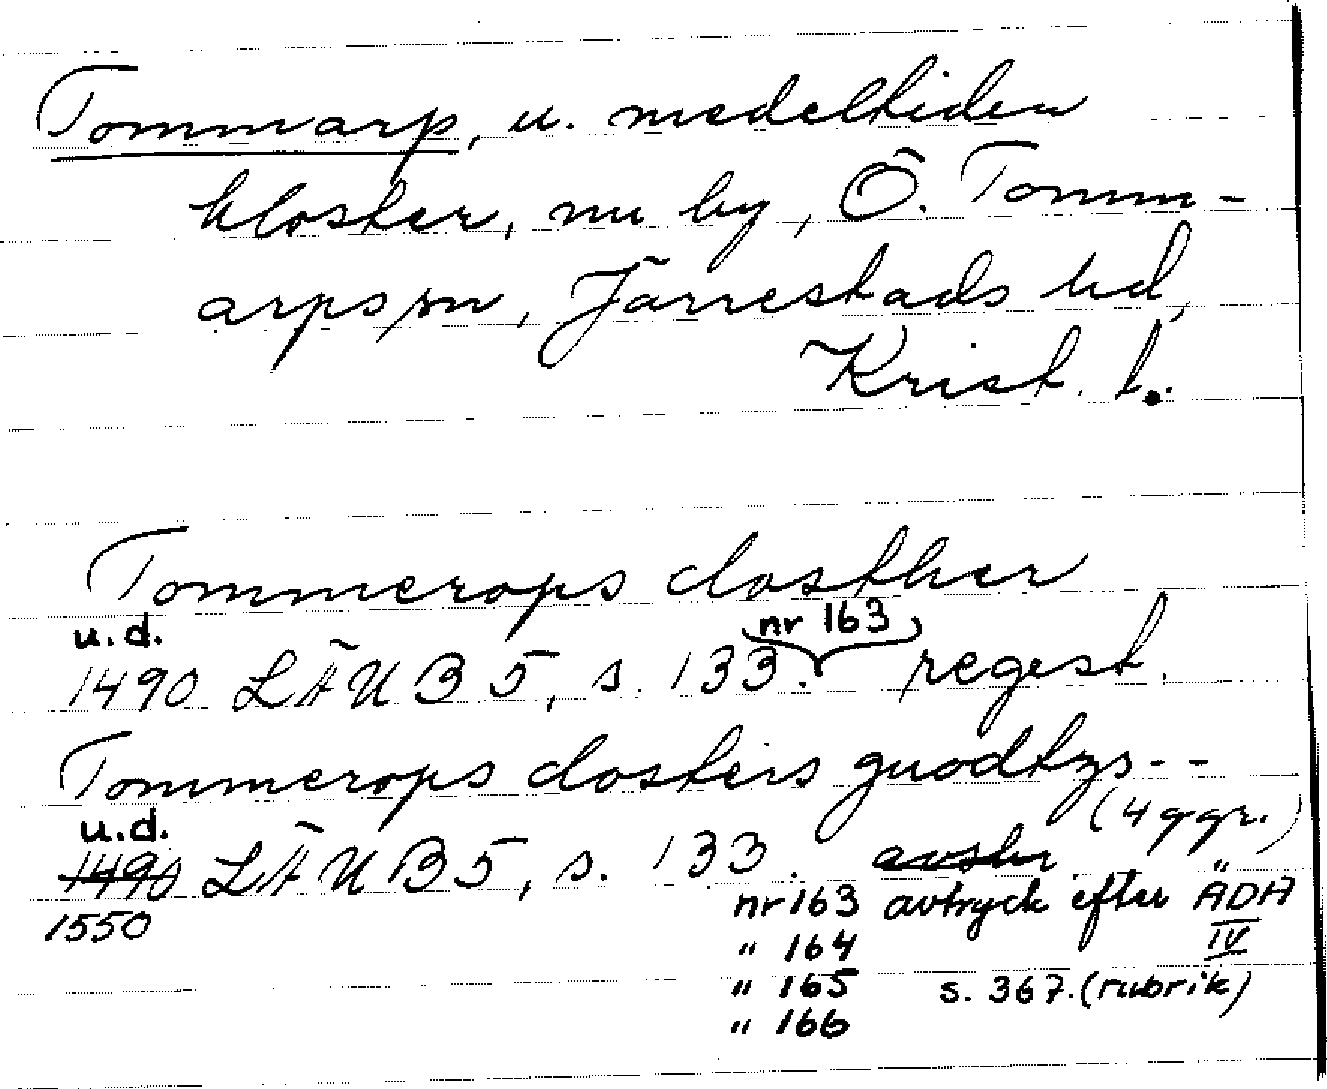 Tommarp, u. medeltiden
kloster, nu by, Ö. Tomm-
arps sn, Järrestads hd,
Krist. l.
Tommerops closther
u.d. nr 163
1490 LÄUB 5, s. 133. regest.
Tommerops closters guodtzs--
u.d. (4 ggr.)
1490 LÄUB 5, s. 133. avskr.
1550 nr 163 avtryck efter ÄDA
" 164 IV
" 165 s. 367. (rubrik)
" 166